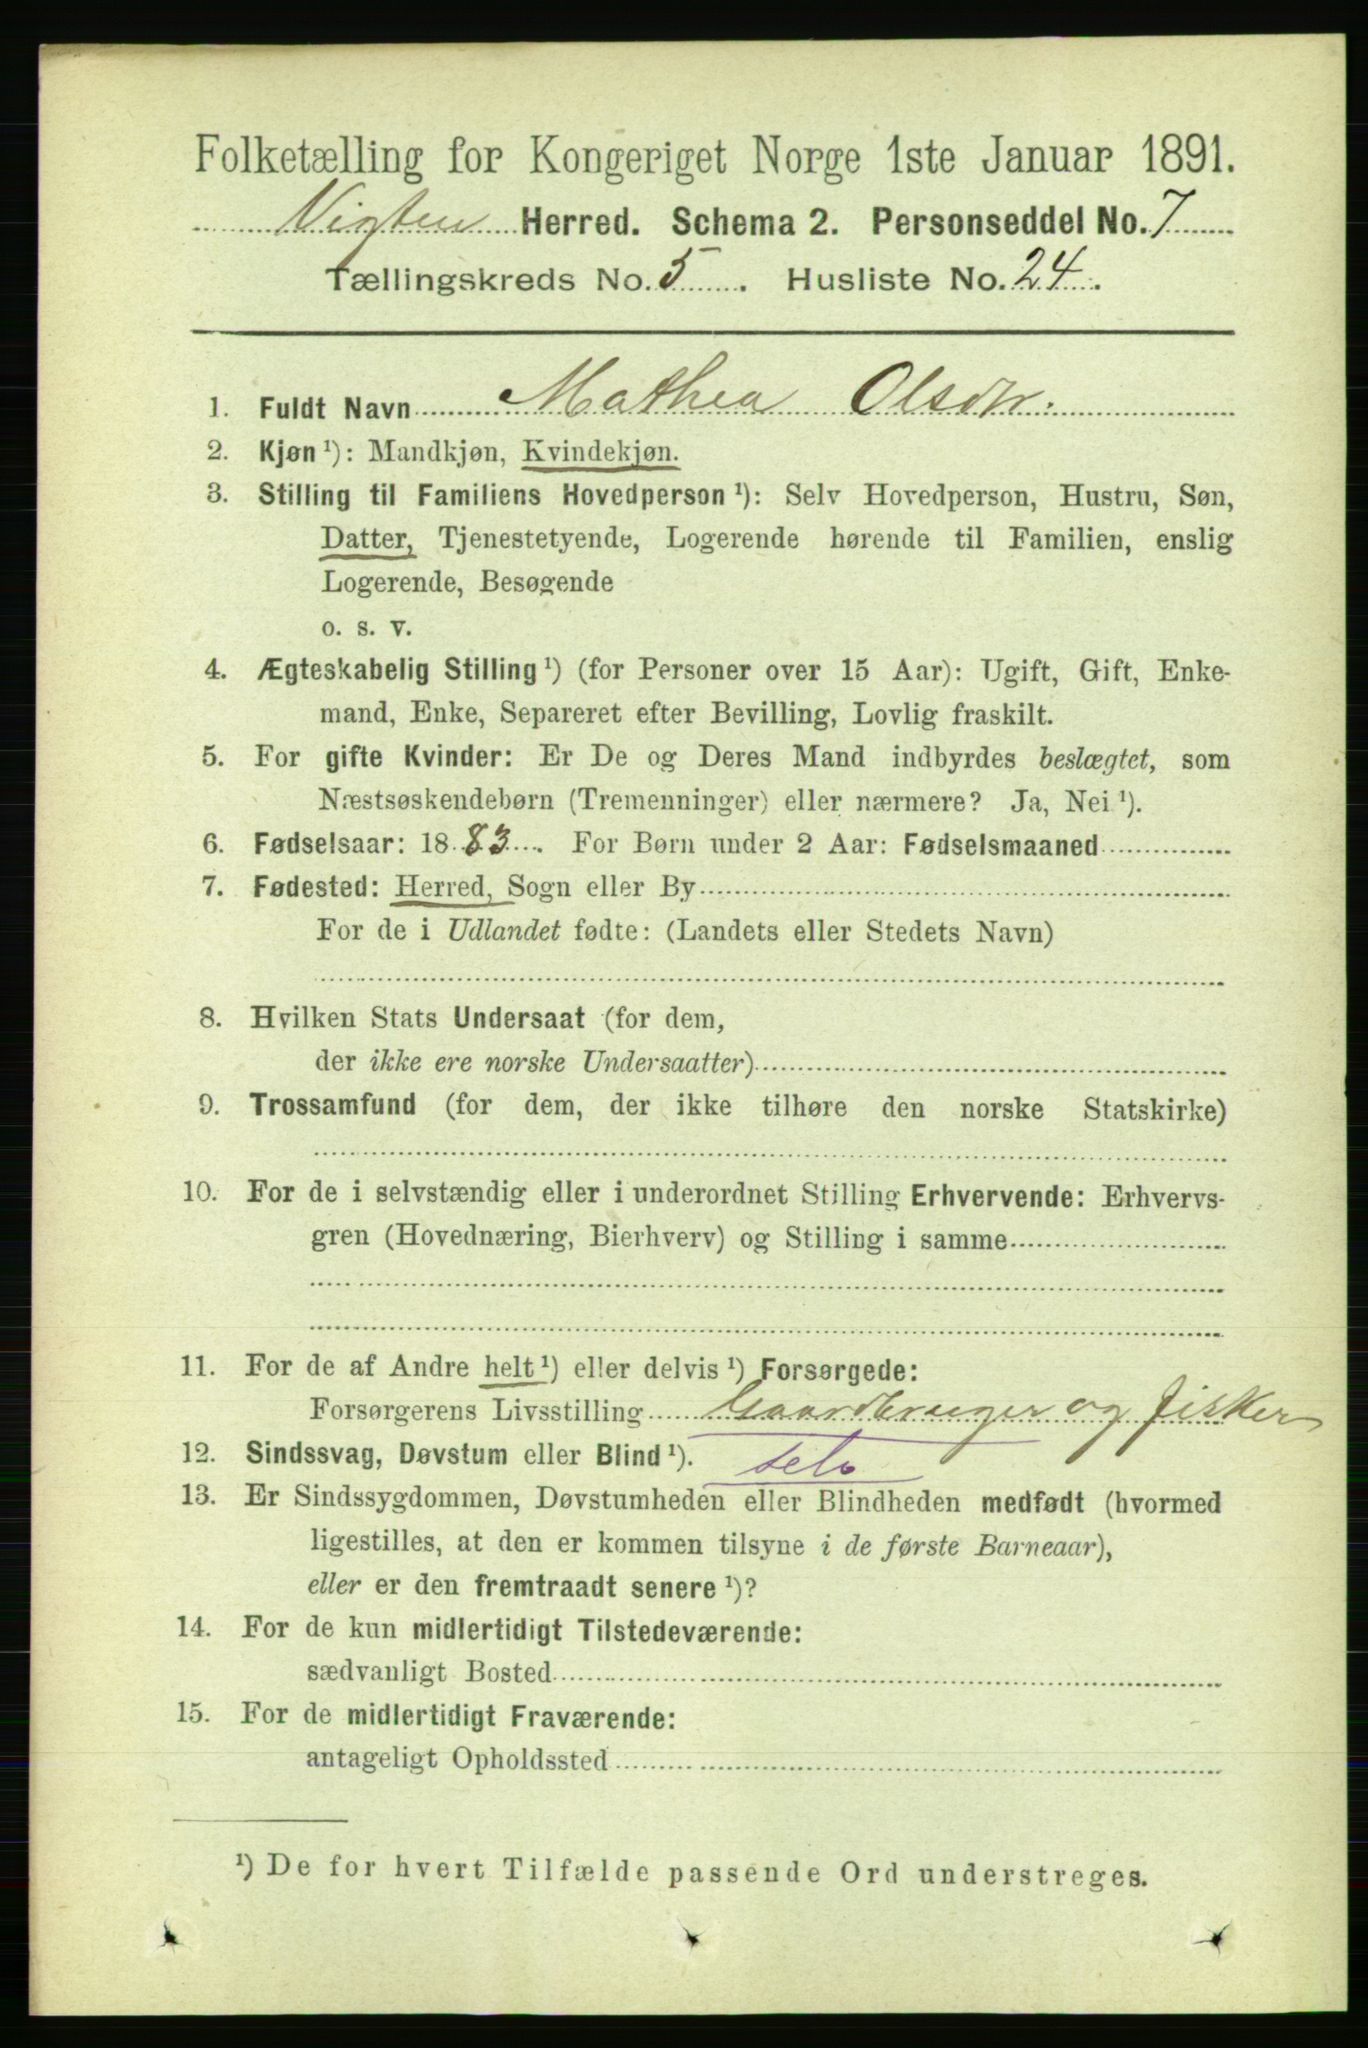 Folketælling for Kongeriget Norge 1ste Januar 1891.
Vigten Herred. Schema 2. Personseddel No. 7
Tællingskreds No. 5. Husliste No. 24.
1. Fuldt Navn Mathea Olsdtr.
2. Kjøn ¹): Mandkjøn, Kvindekjøn.
3. Stilling til Familiens Hovedperson ¹): Selv Hovedperson, Hustru, Søn,
Datter, Tjenestetyende, Logerende hørende til Familien, enslig
Logerende, Besøgende
o. s. v.
4. Ægteskabelig Stilling ¹) (for Personer over 15 Aar): Ugift, Gift, Enke-
mand, Enke, Separeret efter Bevilling, Lovlig fraskilt.
5. For gifte Kvinder: Er De og Deres Mand indbyrdes beslægtet, som
Næstsøskendebørn (Tremenninger) eller nærmere? Ja, Nei ¹).
6. Fødselsaar: 1883. For Børn under 2 Aar: Fødselsmaaned
7. Fødested: Herred, Sogn eller By
For de i Udlandet fødte: (Landets eller Stedets Navn)
8. Hvilken Stats Undersaat (for dem,
der ikke ere norske Undersaatter)
9. Trossamfund (for dem, der ikke tilhøre den norske Statskirke)
10. For de i selvstændig eller i underordnet Stilling Erhvervende: Erhvervs-
gren (Hovednæring, Bierhverv) og Stilling i samme
11. For de af Andre helt ¹) eller delvis ¹) Forsørgede:
Forsørgerens Livsstilling Gaardbruger og fisker
12. Sindssvag, Døvstum eller Blind ¹).
13. Er Sindssygdommen, Døvstumheden eller Blindheden medfødt (hvormed
ligestilles, at den er kommen tilsyne i de første Barneaar),
eller er den fremtraadt senere ¹)?
14. For de kun midlertidigt Tilstedeværende:
sædvanligt Bosted
15. For de midlertidigt Fraværende:
antageligt Opholdssted
¹) De for hvert Tilfælde passende Ord understreges.